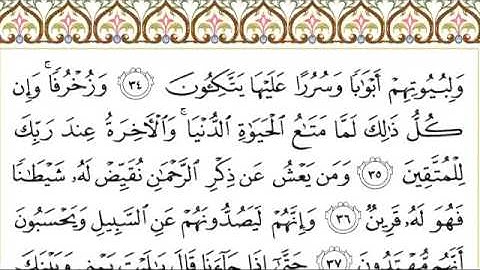 وَلِبُيُوتِهِمْ أَبْوَٰبًا وَسُرُرًا عَلَيْهَا يَتَّكِـُٔونَ ٣٤ وَزُخْرُفًا ۚ وَإِن
كُلُّ ذَٰلِكَ لَمَّا مَتَـٰعُ ٱلْحَيَوٰةِ ٱلدُّنْيَا ۚ وَٱلْـَٔاخِرَةُ عِندَ رَبِّكَ
لِلْمُتَّقِينَ ٣٥ وَمَن يَعْشُ عَن ذِكْرِ ٱلرَّحْمَـٰنِ نُقَيِّضْ لَهُۥ شَيْطَـٰنًا
فَهُوَ لَهُۥ قَرِينٌ ٣٦ وَإِنَّهُمْ لَيَصُدُّونَهُمْ عَنِ ٱلسَّبِيلِ وَيَحْسَبُونَ
أَنَّهُم مُّهْتَدُونَ ٣٧ حَتَّىٰٓ إِذَا جَآءَنَا قَالَ يَـٰلَيْتَ بَيْنِى وَبَيْنَكَ